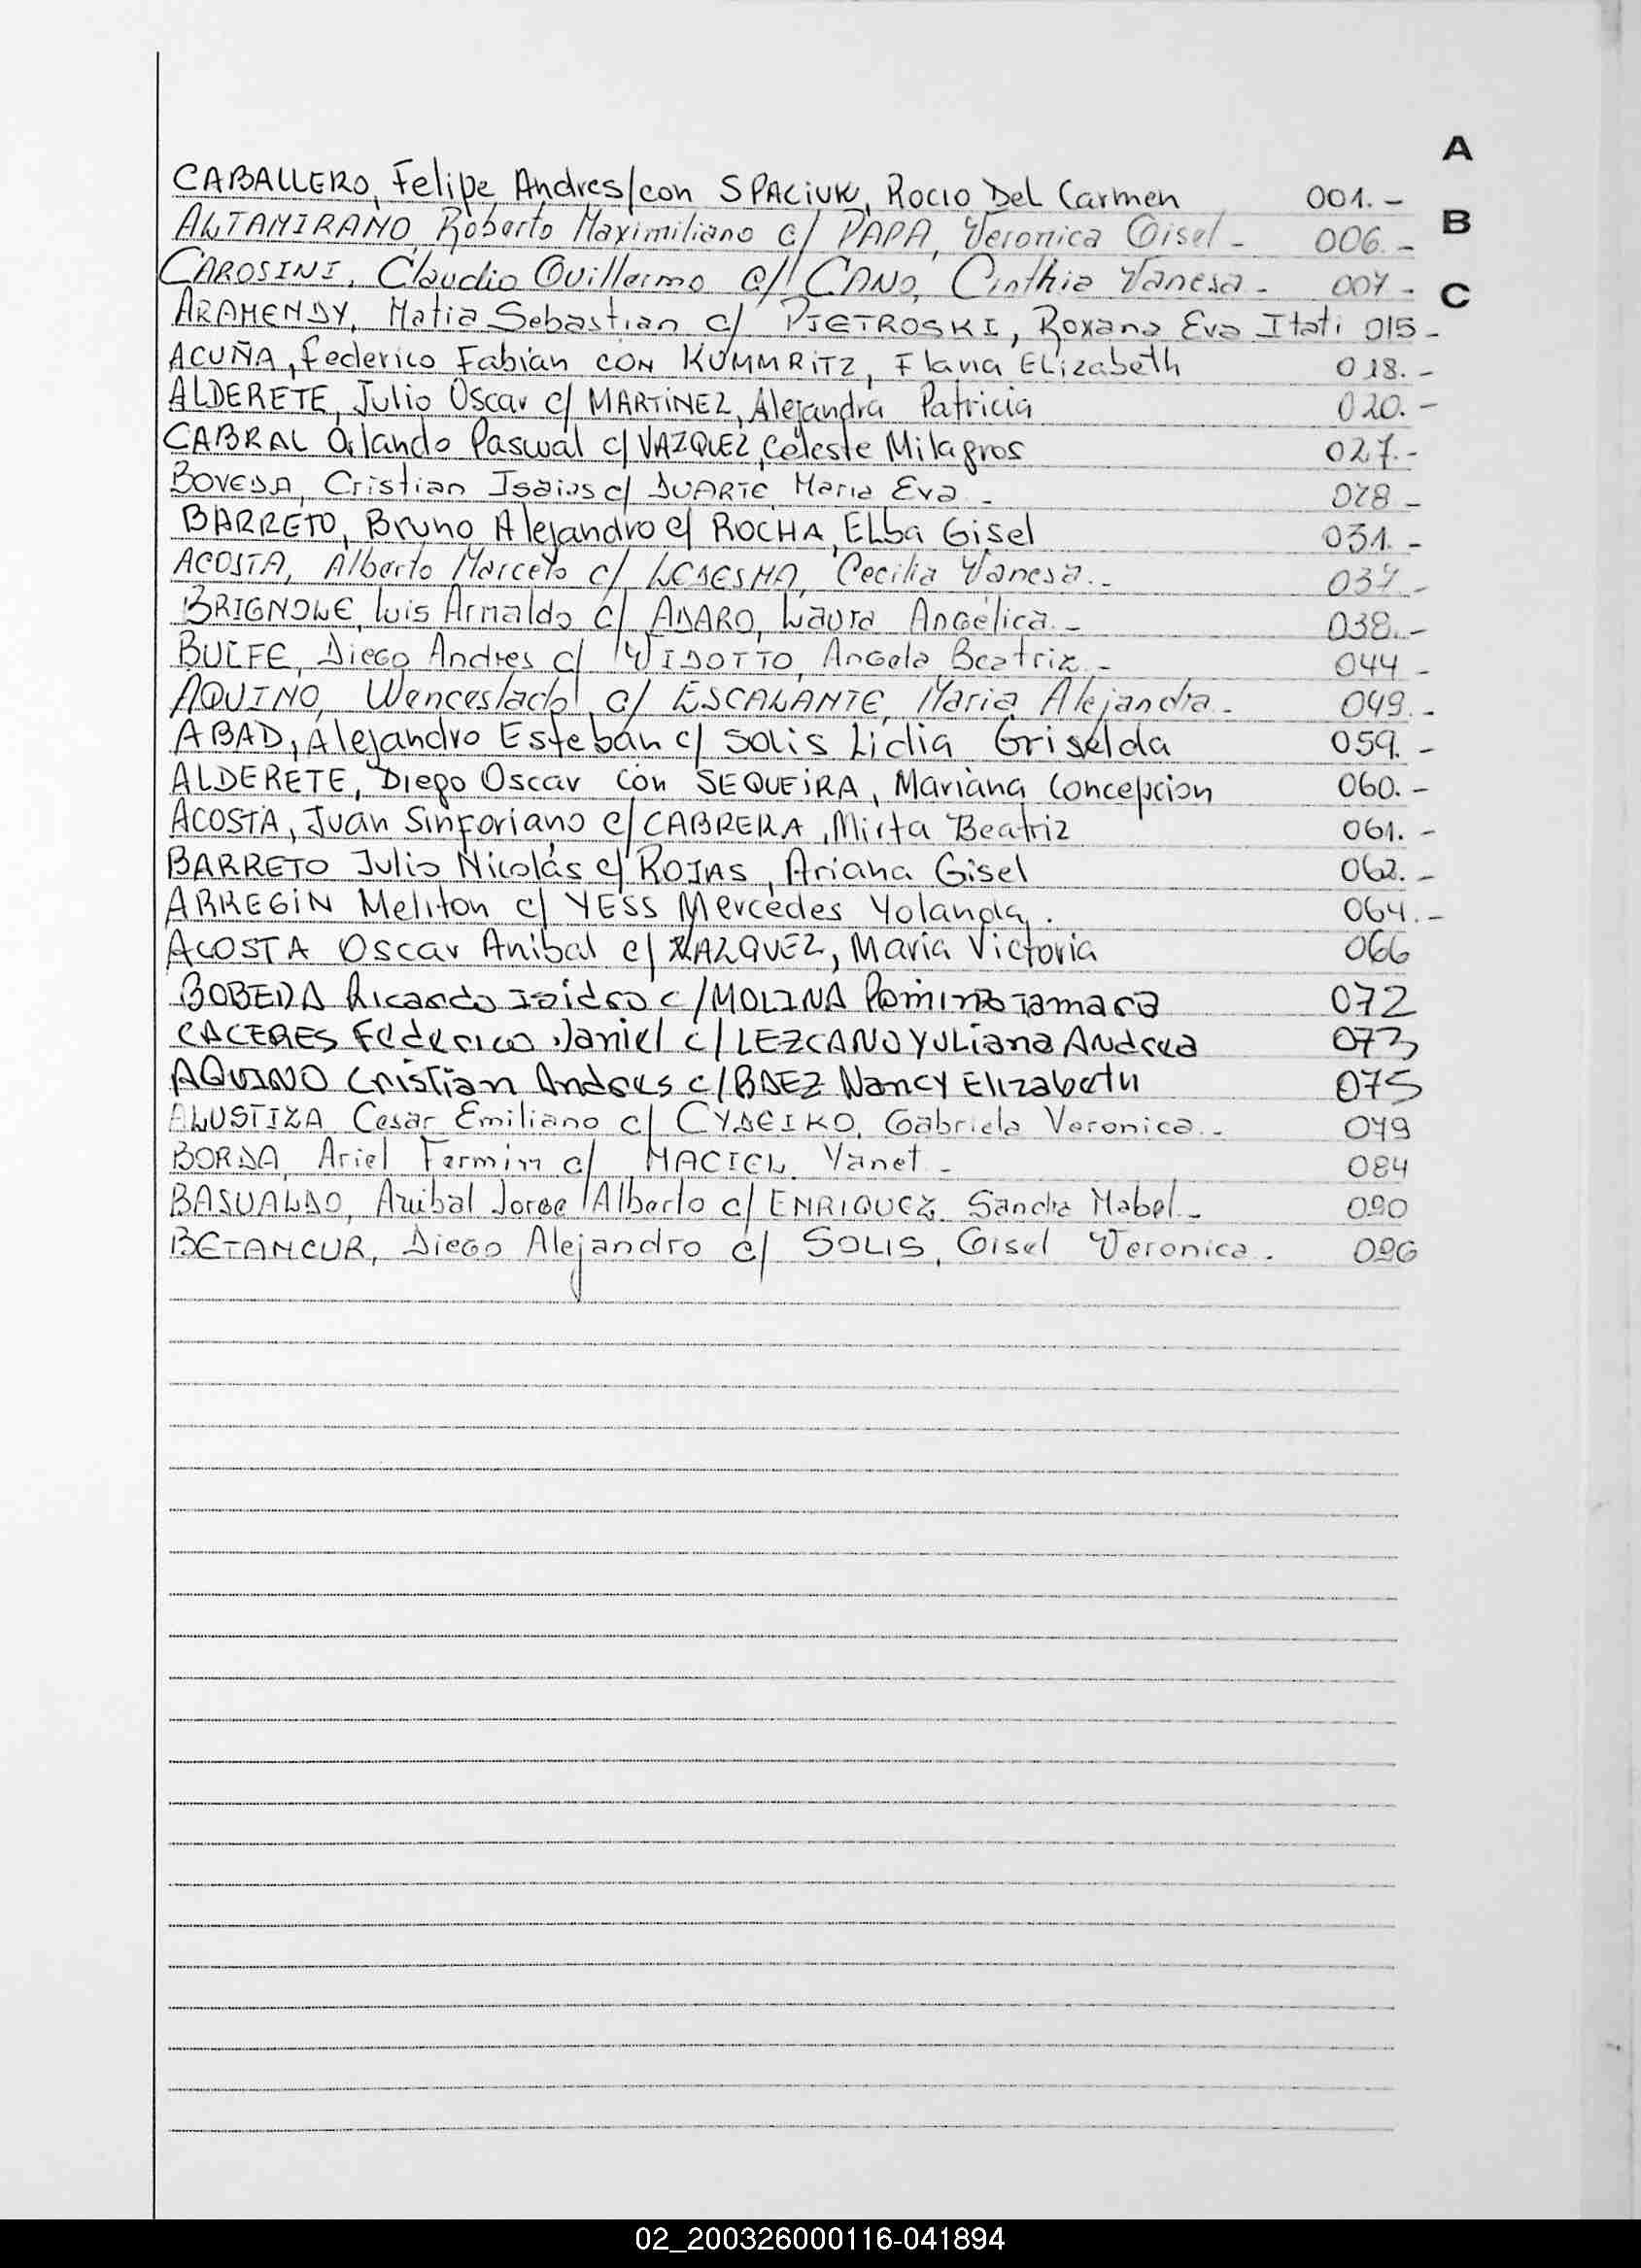 A
CABALLERO, Felipe Andres/con SPACiUK, ROCIO Del Carmen 001.-
ALTAMIRANO, Roberto Maximiliano c/ PAPA, Veronica Gisel- 006.-
B
CAROSINI, Claudio Guillermo c/ CANO, Cinthia Vanesa- 007-
C
ARAMENDY, Matia Sebastian c/ PIETROSKI, Roxana Eva Itati 015-
ACUÑA, Federico Fabian CON KUMMRiTZ, Flavia ELizabeth 018.-
ALDERETE, Julio Oscar c/ MARTiNEZ, Alejandra Patricia 020.-
CABRAL Orlando Pascual c/ VAZQUEZ, Celeste Milagros 027.-
BOVEDA, Cristian Isaias c/ DUARTE, Maria Eva- 028-
BARRETO, Bruno Alejandro c/ ROCHA, ELba Gisel 031.-
ACOSTA, Alberto Marcelo c/ LEDESMA, Cecilia Vanesa.- 037-
BRIGNOLE, Luis Arnaldo c/ ADARO, Laura Angélica.- 038.-
BULFE, Diego Andres c/ VIDOTTO, Angela Beatriz- 044-
AQUINO, Wenceslado c/ ESCALANTE, Maria Alejandra.- 049.-
ABAD, Alejandro Esteban c/ SOLiS Lidia Griselda 059.-
ALDERETE, Diego Oscar con SEQUEiRA, Mariana Concepcion 060.-
ACOSTA, Juan Sinforiano c/ CABRERA, Mirta Beatriz 061.-
BARRETO Julio Nicolás c/ ROJAS, Ariana Gisel 062.-
ARREGiN Meliton c/ YESS Mercedes Yolanda. 064.-
ACOSTA Oscar Anibal c/ VAZQUEZ, Maria Victoria 066
BOBEDA Ricardo Isidro c/ MOLINA Romina Tamara 072
CACERES Federico Daniel c/ LEZCANO YULiana Andrea 073
AQUINO Cristian Andres c/ BAEZ Nancy Elizabeth 075
ALUSTIZA Cesar Emiliano c/ CYDEIKO, Gabriela Veronica.- 079
BORDA, Ariel Fermin c/ MACIEL, Yanet- 084
BASUALDO, Anibal Jorge Alberto c/ ENRIQUEZ, Sandra Mabel- 090
BETANCUR, Diego Alejandro c/ SOLIS, Gisel Veronica. 096
02_200326000116-041894